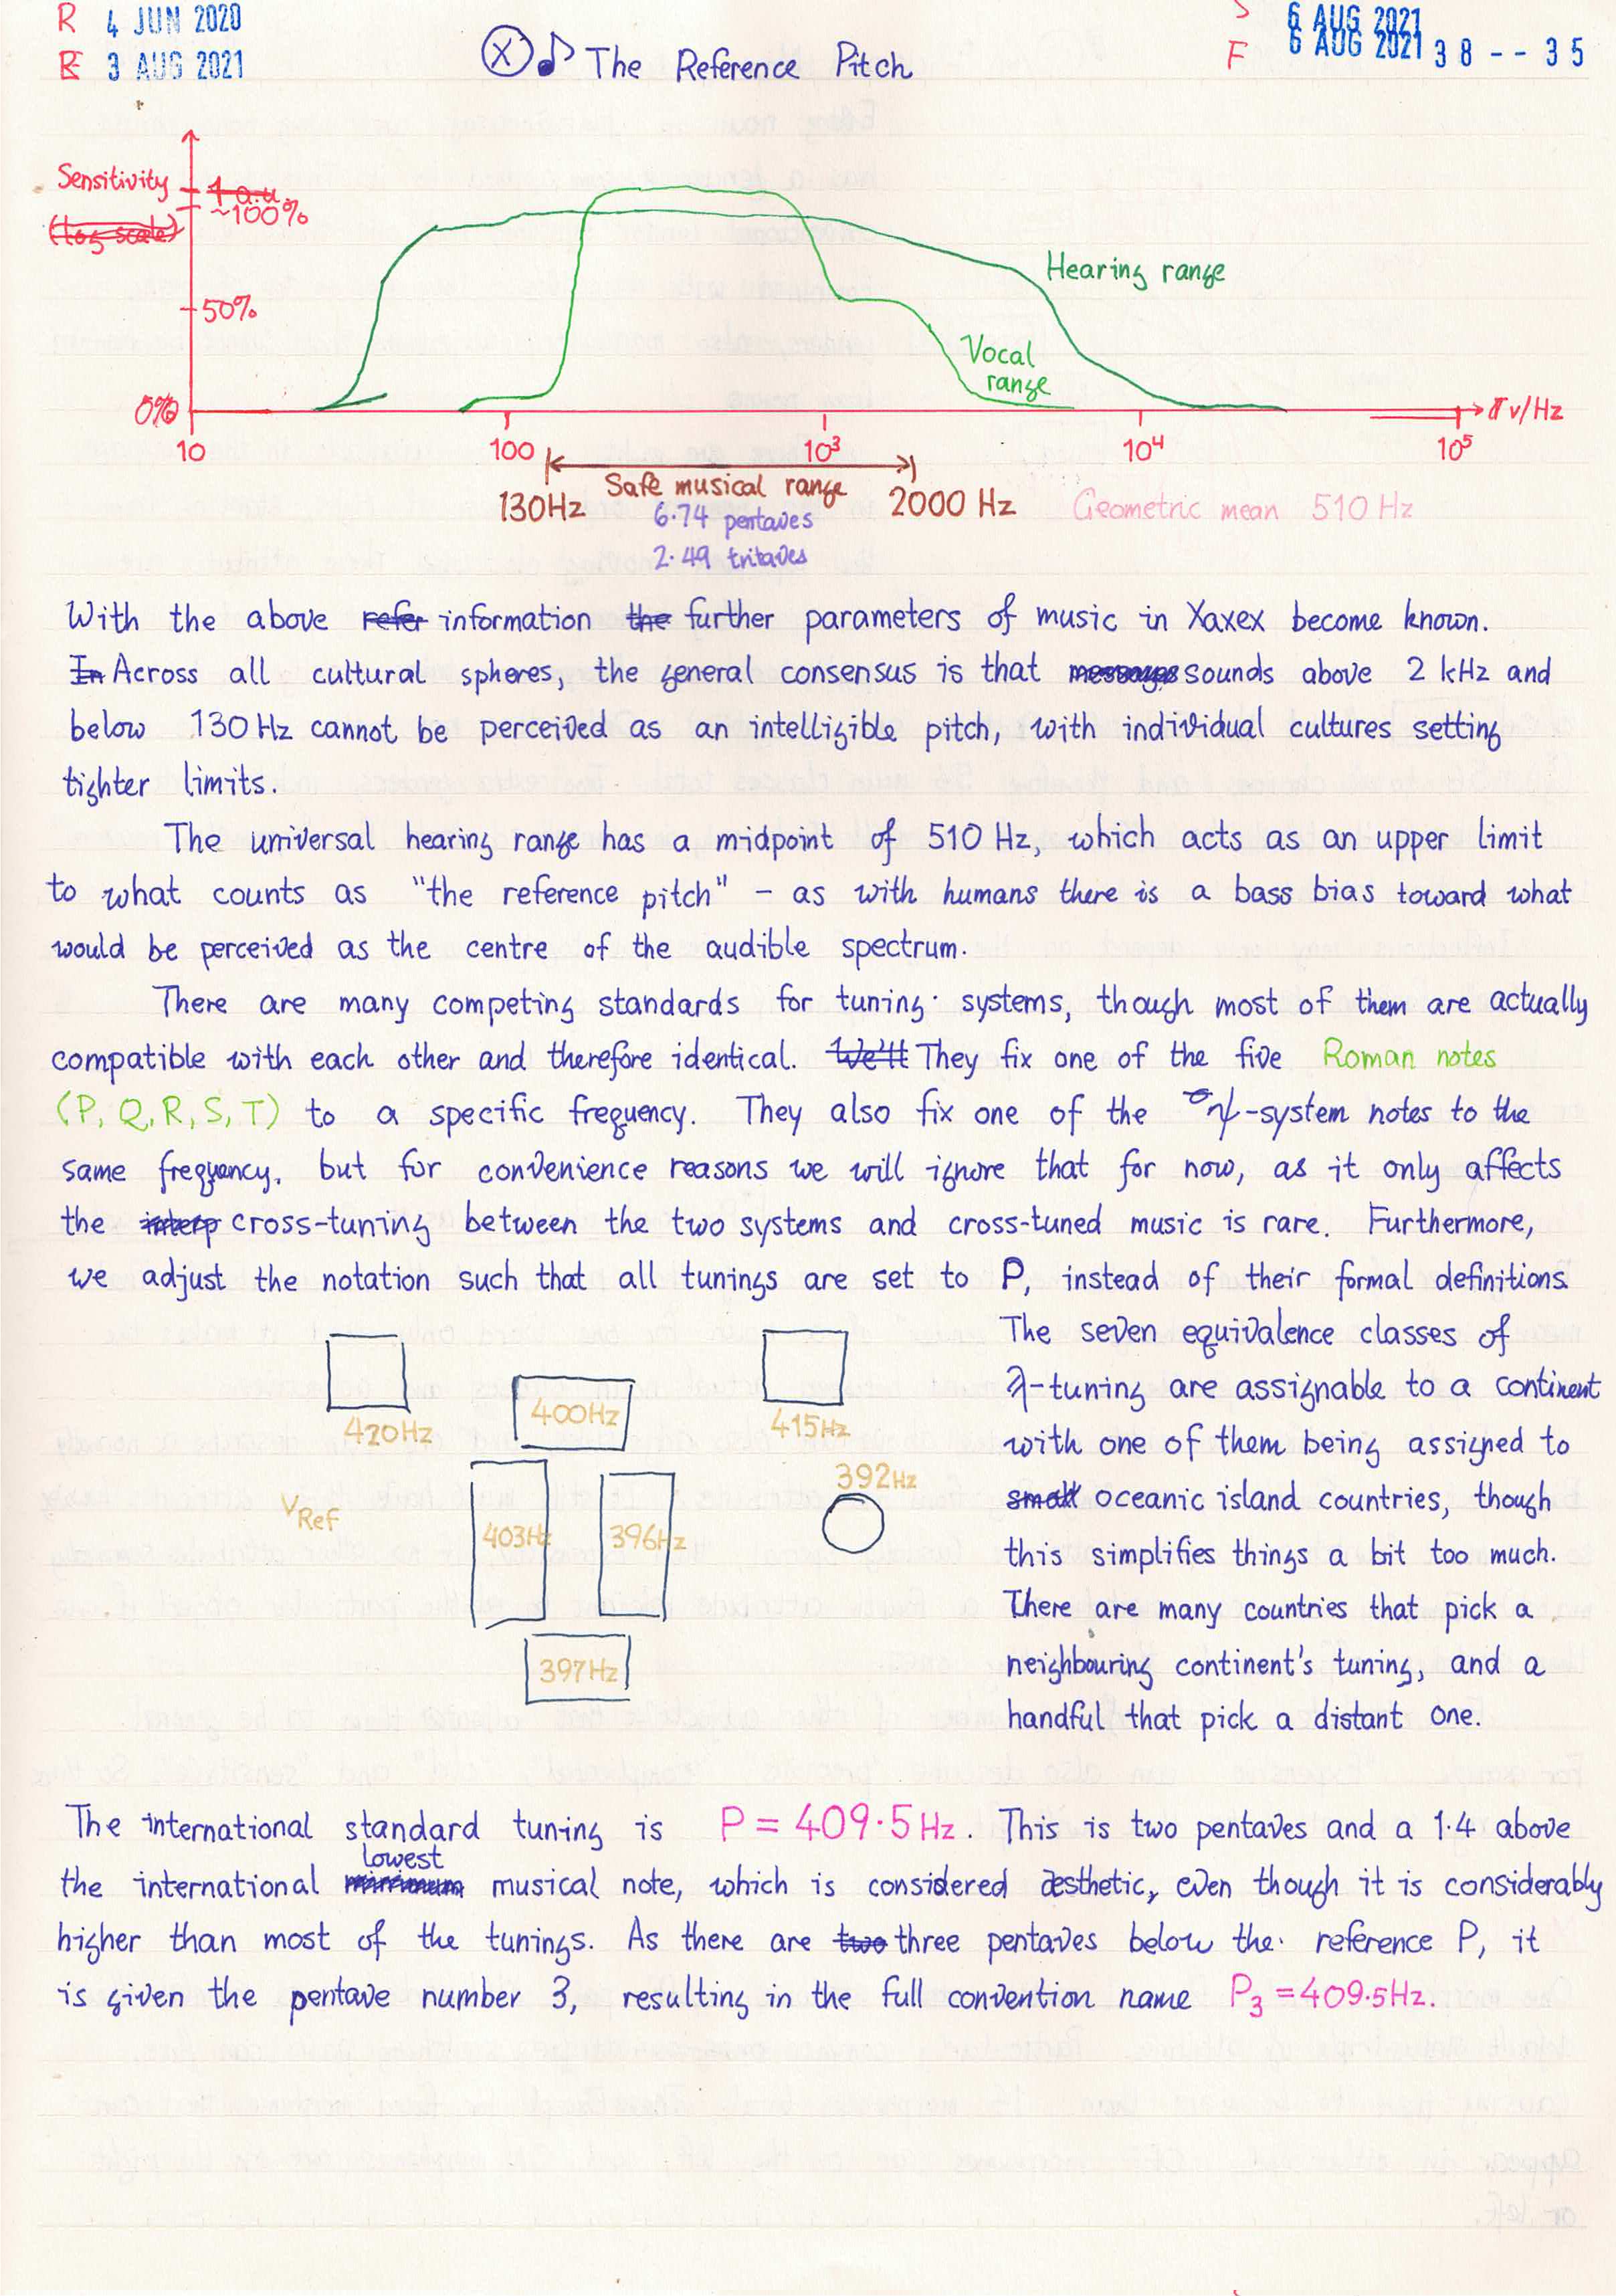 R 4 JUN 2020
R 3 AUG 2021
S 6 AUG 2021
F 6 AUG 2021 38--35
X ♪ The Reference Pitch
Sensitivity
(log scale)
1 a.u.
~100%
50%
0%
Hearing range
Vocal
range
ν/Hz
10 100 10³ 10⁴ 10⁵
Safe musical range
130Hz 2000 Hz Geometric mean 510 Hz
6.74 pentaves
2.49 tritaves
With the above refer information the further parameters of music in Xaxex become known.
In Across all cultural spheres, the general consensus is that sounds above 2 kHz and
below 130 Hz cannot be perceived as an intelligible pitch, with individual cultures setting
tighter limits.
The universal hearing range has a midpoint of 510 Hz, which acts as an upper limit
to what counts as "the reference pitch" – as with humans there is a bass bias toward what
would be perceived as the centre of the audible spectrum.
There are many competing standards for tuning systems, though most of them are actually
compatible with each other and therefore identical. We'll They fix one of the five Roman notes
(P, Q, R, S, T) to a specific frequency. They also fix one of the -system notes to the
same frequency, but for convenience reasons we will ignore that for now, as it only affects
the interp cross-tuning between the two systems and cross-tuned music is rare. Furthermore,
we adjust the notation such that all tunings are set to P, instead of their formal definitions.
The seven equivalence classes of
-tuning are assignable to a continent
with one of them being assigned to
small oceanic island countries, though
this simplifies things a bit too much.
There are many countries that pick a
neighbouring continent's tuning, and a
handful that pick a distant one.
420Hz
400Hz
415Hz
392Hz
νRef
403Hz
396Hz
397Hz
The international standard tuning is P = 409.5 Hz. This is two pentaves and a 1.4 above
the international minimum lowest musical note, which is considered æsthetic, even though it is considerably
higher than most of the tunings. As there are two three pentaves below the reference P, it
is given the pentave number 3, resulting in the full convention name P₃ = 409.5Hz.